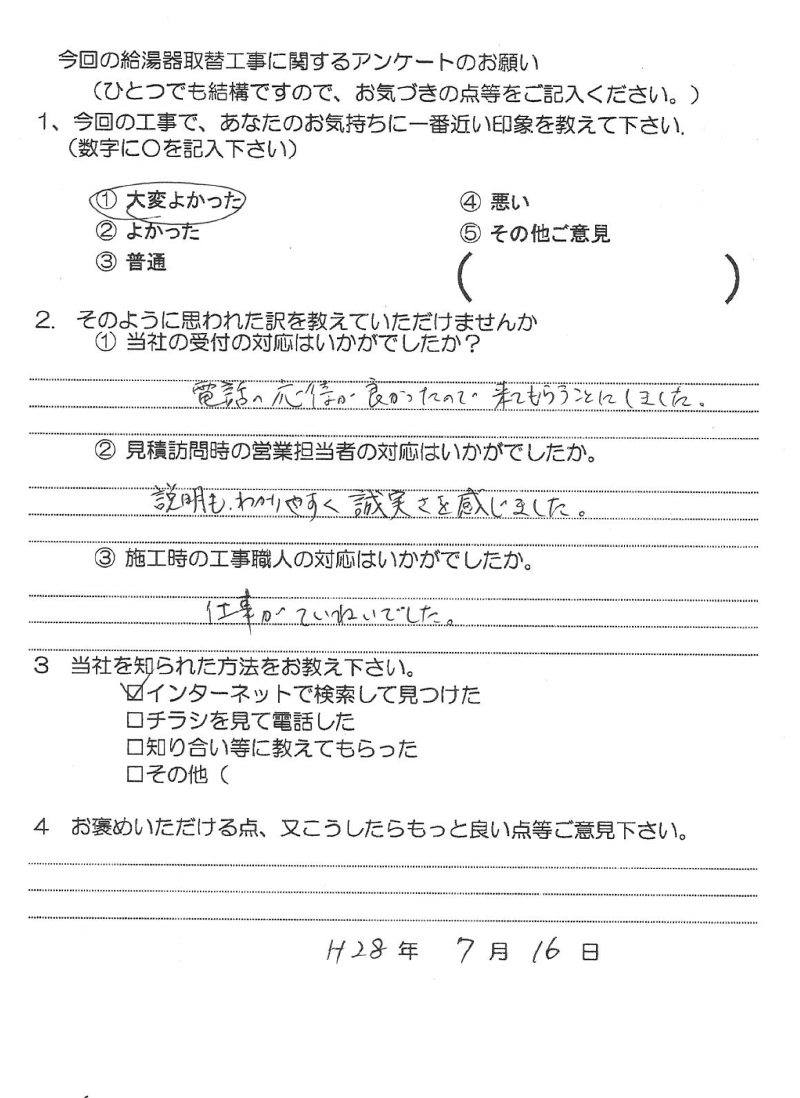 今回の給湯器取替工事に関するアンケートのお願い
（ひとつでも結構ですので、お気づきの点等をご記入ください。）
1、今回の工事で、あなたのお気持ちに一番近い印象を教えて下さい.
（数字に〇を記入下さい）
① 大変よかった ④ 悪い
② よかった ⑤ その他ご意見
③ 普通 （ ）
2. そのように思われた訳を教えていただけませんか
① 当社の受付の対応はいかがでしたか？
電話の応待が良かったので 来てもらうことにしました。
② 見積訪問時の営業担当者の対応はいかがでしたか。
説明も、わかりやすく誠実さを感じました。
③ 施工時の工事職人の対応はいかがでしたか。
仕事がていねいでした。
3 当社を知られた方法をお教え下さい。
☑インターネットで検索して見つけた
□チラシを見て電話した
□知り合い等に教えてもらった
□その他（
4 お褒めいただける点、又こうしたらもっと良い点等ご意見下さい。
H28年 7月16日